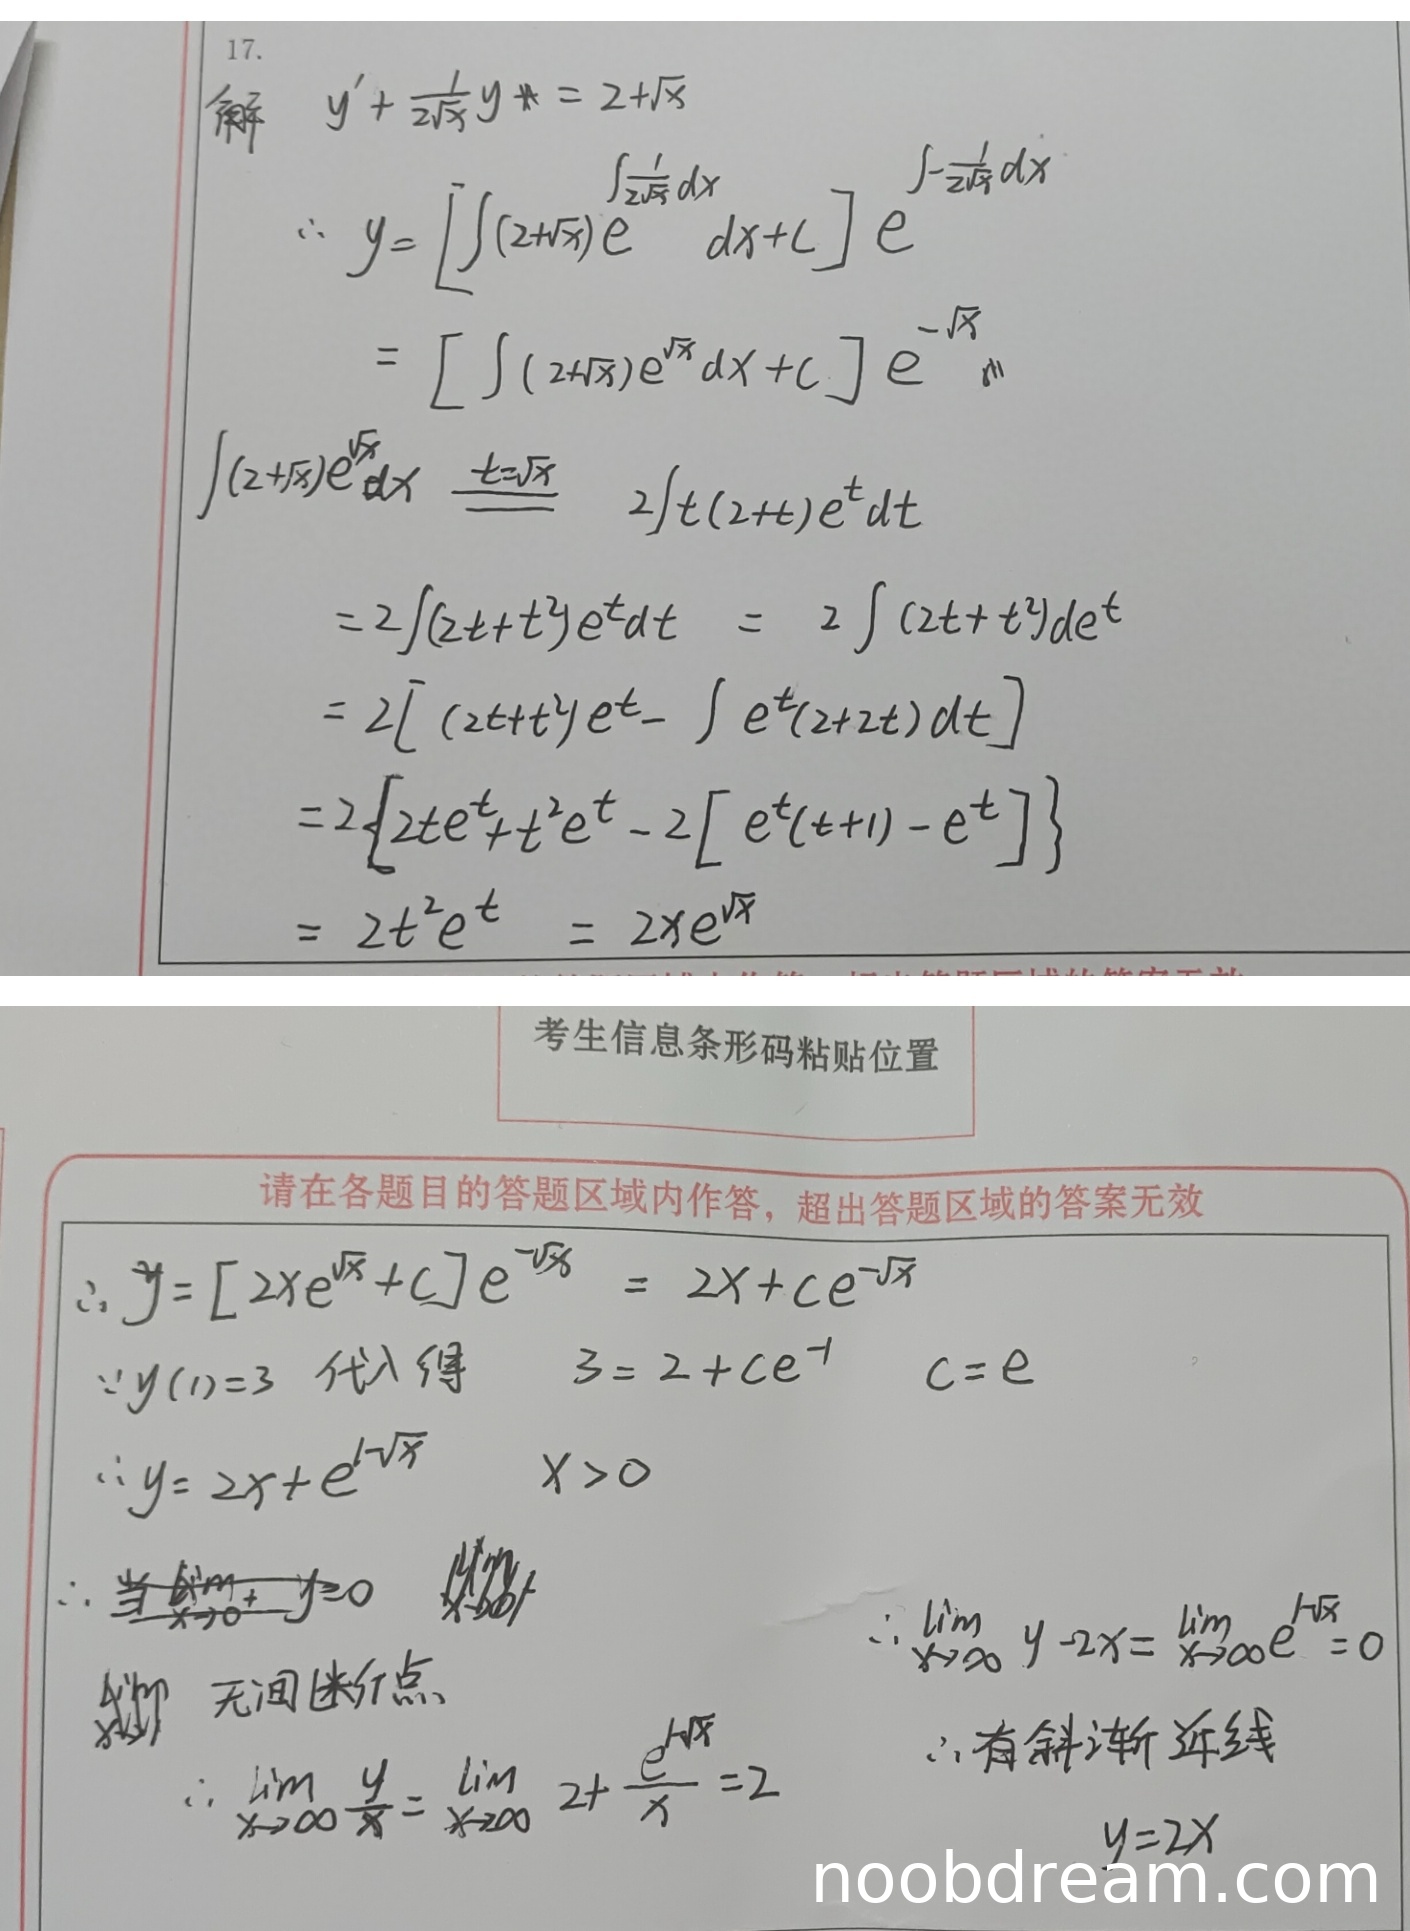 17.
解 y' + \frac{1}{2\sqrt{x}} y = 2+\sqrt{x}
∴ y = [∫(2+\sqrt{x}) e^{∫\frac{1}{2\sqrt{x}}dx} dx+C] e^{∫-\frac{1}{2\sqrt{x}}dx}
= [∫(2+\sqrt{x})e^{\sqrt{x}}dx+C] e^{-\sqrt{x}}
∫(2+\sqrt{x})e^{\sqrt{x}}dx \xlongequal{t=\sqrt{x}} 2∫t(2+t)e^t dt
= 2∫(2t+t²)e^t dt = 2∫(2t+t²)de^t
= 2[(2t+t²)e^t - ∫e^t(2+2t)dt]
= 2{2te^t+t²e^t - 2[e^t(t+1) - e^t]}
= 2t²e^t = 2xe^{\sqrt{x}}
考生信息条形码粘贴位置
请在各题目的答题区域内作答，超出答题区域的答案无效
∴ y = [2xe^{\sqrt{x}}+C]e^{-\sqrt{x}} = 2x+ce^{-\sqrt{x}}
∵ y(1)=3 代入得 3=2+ce^{-1} c=e
∴ y = 2x+e^{1-\sqrt{x}} x>0
∴ 当 lim_{x→0^+} y=0
无间断点
∴ lim_{x→∞} \frac{y}{x} = lim_{x→∞} 2+\frac{e^{1-\sqrt{x}}}{x} = 2
∴ lim_{x→∞} y-2x = lim_{x→∞} e^{1-\sqrt{x}} = 0
∴ 有斜渐近线
y=2x
noobdream.com